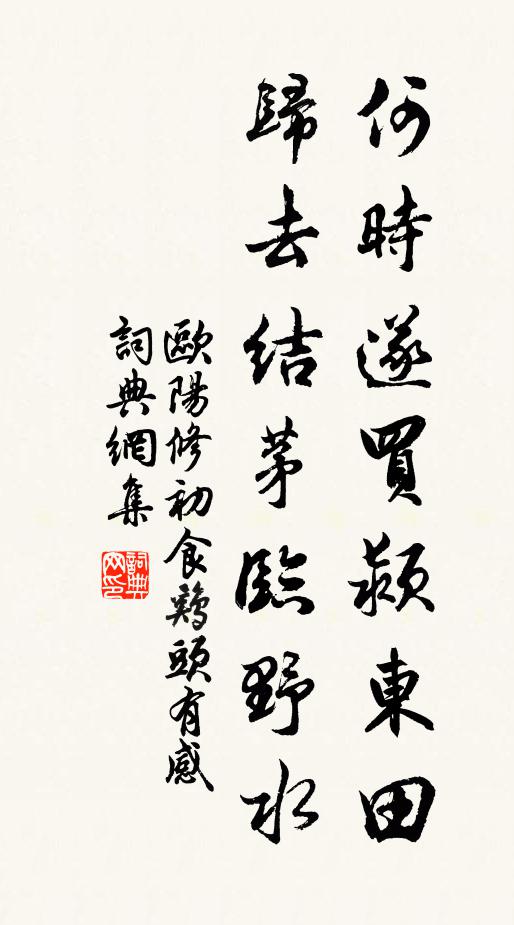 何時遂買潁東田
歸去結茅臨野水
歐陽修初食鷄頭有感
詞典網集
詞典網印